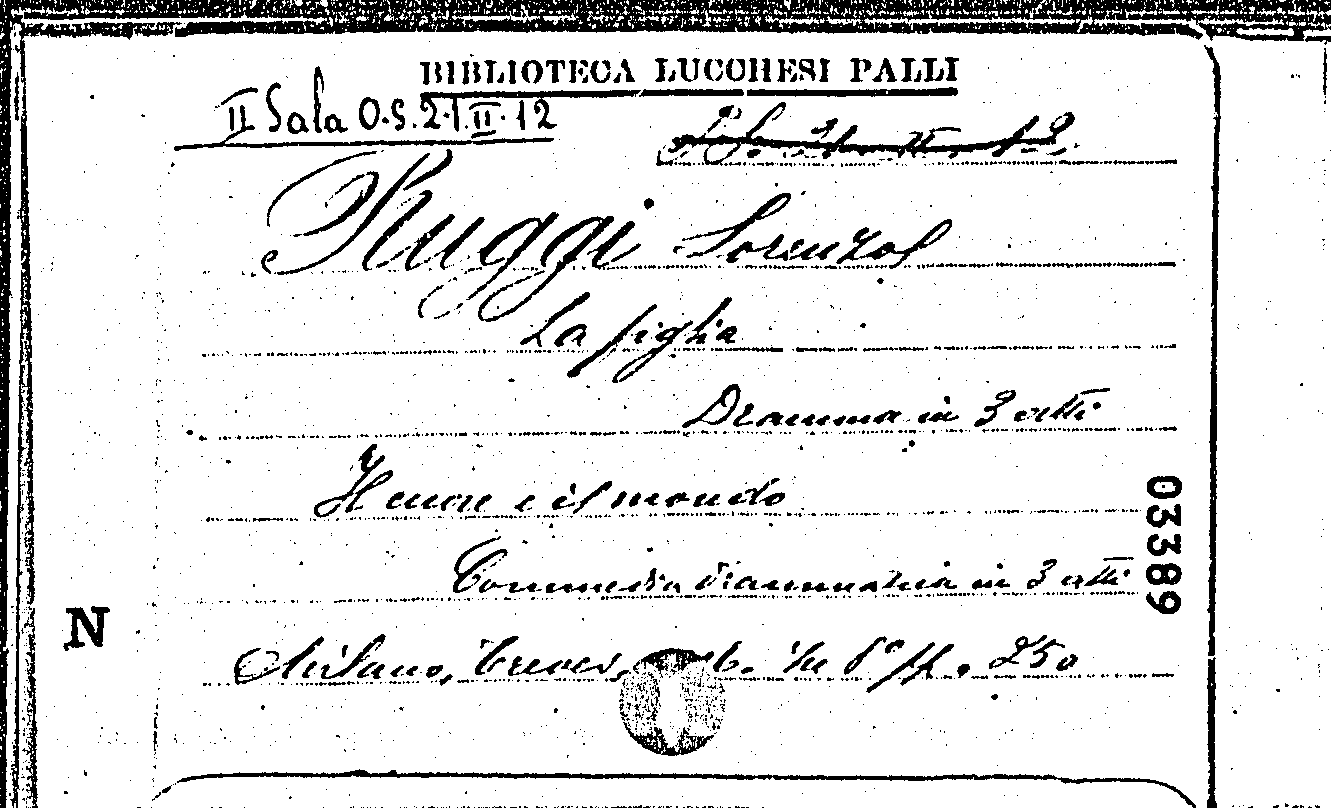 BIBLIOTECA LUCCHESI PALLI
II Sala O.S. 21. II. 12
Ruggi Lorenzo
La figlia
Dramma in 3 atti
Il cuore e il mondo
Commedia drammatica in 3 atti
03389
N
Milano, Treves, In 8° pp. 250